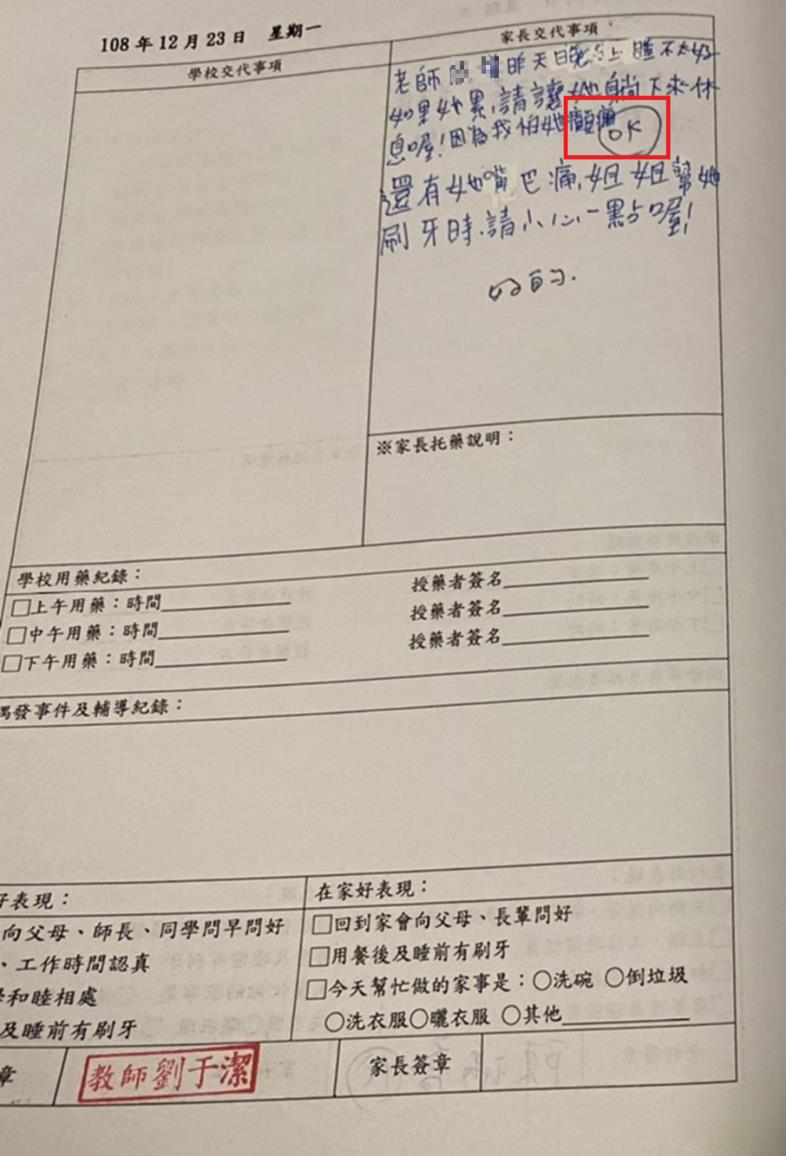 108 年 12 月 23 日 星期一
學校交代事項
家長交代事項
老師 昨天晚上睡不太好
如果她累,請讓她躺下來休
息喔!因為我怕她癲癇
OK
還有她嘴巴痛,姐姐幫她
刷牙時,請小心一點喔!
好的.
※家長托藥說明:
學校用藥紀錄:
□上午用藥:時間 授藥者簽名
□中午用藥:時間 授藥者簽名
□下午用藥:時間 授藥者簽名
偶發事件及輔導紀錄:
好表現:
向父母、師長、同學問早問好
、工作時間認真
和睦相處
及睡前有刷牙
在家好表現:
□回到家會向父母、長輩問好
□用餐後及睡前有刷牙
□今天幫忙做的家事是:○洗碗 ○倒垃圾
○洗衣服○曬衣服 ○其他
章
教師劉于潔
家長簽章